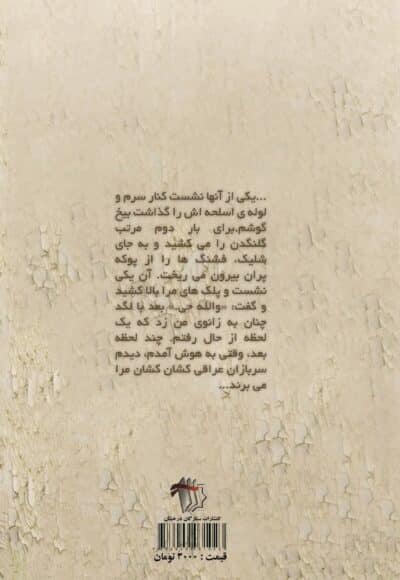 ...یکی از آنها نشست کنار سرم و
لوله ی اسلحه اش را گذاشت بیخ
گوشم.برای بار دوم مرتب
گلنگدن را می کشید و به جای
شلیک، فشنگ ها را از پوکه
پران بیرون می ریخت. آن یکی
نشست و پلک های مرا بالا کشید
و گفت: «والله حی.» بعد با لگد
چنان به زانوی من زد که یک
لحظه از حال رفتم. چند لحظه
بعد، وقتی به هوش آمدم، دیدم
سربازان عراقی کشان کشان مرا
می برند...
انتشارات ستارگان درخشان
قیمت : ۳۰۰۰ تومان